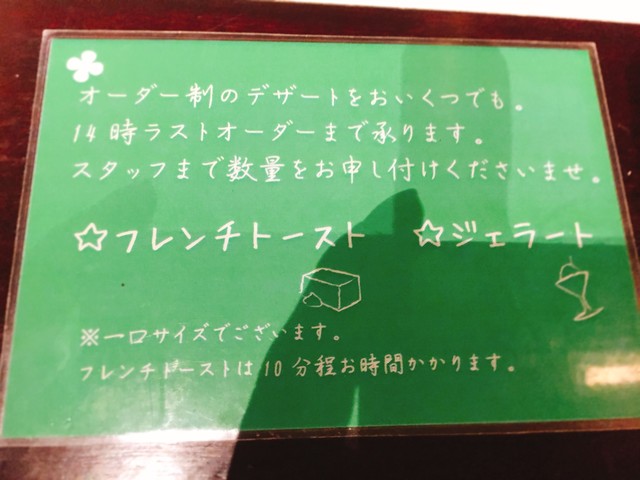 オーダー制のデザートをおいくつでも。
14時ラストオーダーまで承ります。
スタッフまで数量をお申し付けくださいませ。
☆フレンチトースト ☆ジェラート
※一口サイズでございます。
フレンチトーストは10分程お時間かかります。